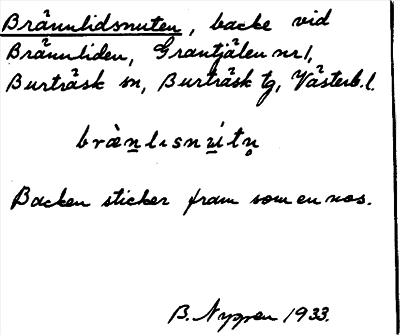 Brännlidsnuten, backe vid
Brännliden, Grantjälen nr 1,
Burträsk sn, Burträsk tg, Västerb.l.
Backen sticker fram som en nos.
B. Nygren 1933.